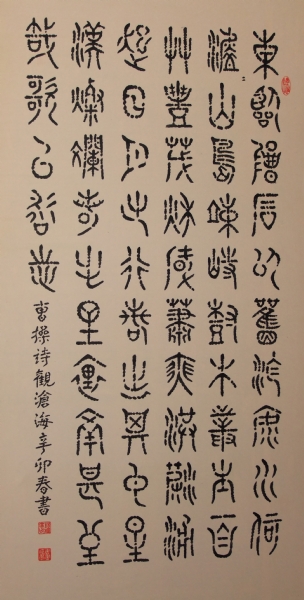 東臨碣石以觀滄海水何
澹〻山島竦峙樹木叢生百
艸豐茂秋風蕭瑟洪波涌
起日月之行若出其中星
漢燦爛若出其裏幸甚至
哉歌以詠志
曹操詩觀滄海辛卯春書